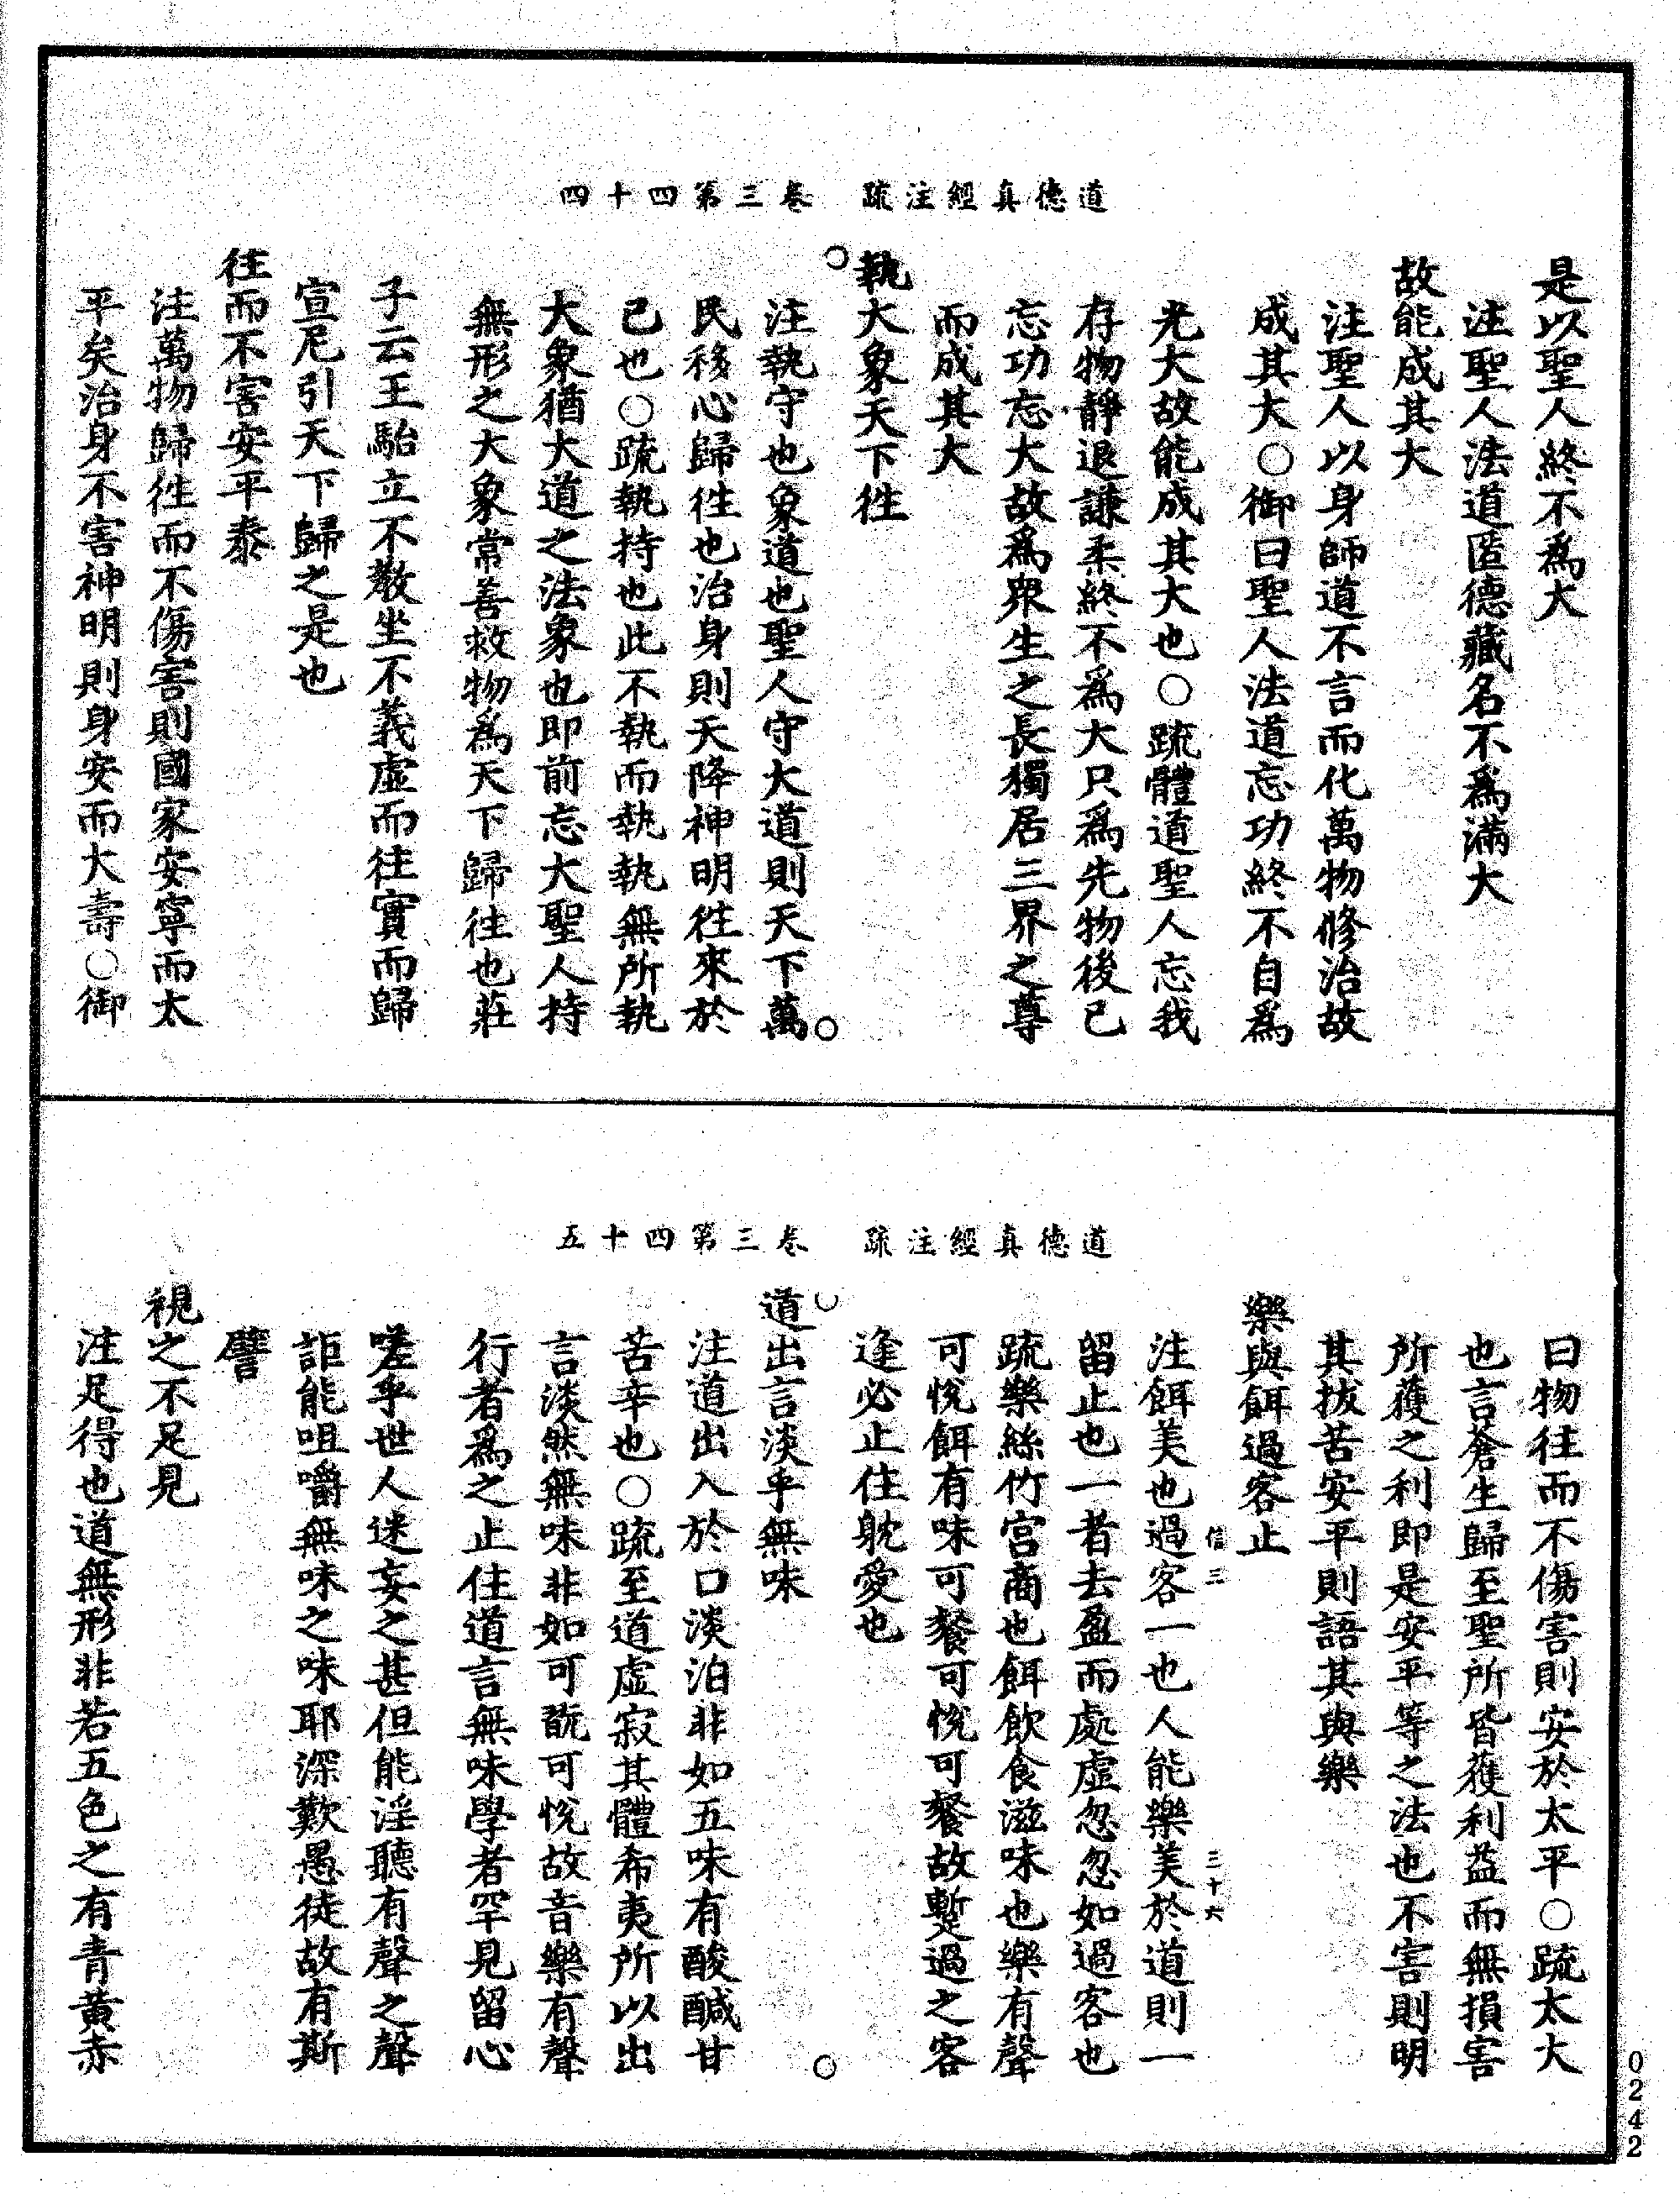 道德真經注疏　卷三第四十四
是以聖人終不為大
注聖人法道匿德藏名不為滿大
故能成其大
注聖人以身師道不言而化萬物修治故
成其大○御曰聖人法道忘功終不自為
光大故能成其大也○疏體道聖人忘我
存物靜退謙柔終不為大只為先物後己
忘功忘大故為眾生之長獨居三界之尊
而成其大
執大象天下往
注執守也象道也聖人守大道則天下萬
民移心歸往也治身則天降神明往來於
己也○疏執持也此不執而執執無所執
大象猶大道之法象也即前忘大聖人持
無形之大象常善救物為天下歸往也莊
子云王駘立不教坐不義虛而往實而歸
宣尼引天下歸之是也
往而不害安平泰
注萬物歸往而不傷害則國家安寧而太
平矣治身不害神明則身安而大壽○御
道德真經注疏　卷三第四十五
曰物往而不傷害則安於太平○疏太大
也言蒼生歸至聖所皆獲利益而無損害
所獲之利即是安平等之法也不害則明
其拔苦安平則語其與樂
樂與餌過客止
信三　三十六
注餌美也過客一也人能樂美於道則一
留止也一者去盈而處虛忽忽如過客也
疏樂絲竹宮商也餌飲食滋味也樂有聲
可悅餌有味可餐可悅可餐故蹔過之客
逢必止住躭愛也
道出言淡乎無味
注道出入於口淡泊非如五味有酸鹹甘
苦辛也○疏至道虛寂其體希夷所以出
言淡然無味非如可翫可悅故音樂有聲
行者為之止住道言無味學者罕見留心
嗟乎世人迷妄之甚但能淫聽有聲之聲
詎能咀嚼無味之味耶深歎愚徒故有斯
譬
視之不足見
注足得也道無形非若五色之有青黃赤
0242